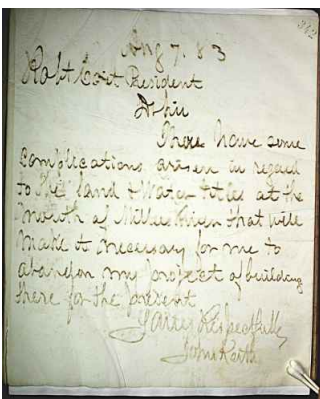 Aug 7. 83
Robt Coit President
D Sir
There have some
Complications arisen in regard
to the land & Water titles at the
Mouth of Miller River that will
Make it necessary for me to
abandon my project of building
there for the present
Yours Respectfully
John Keith
342